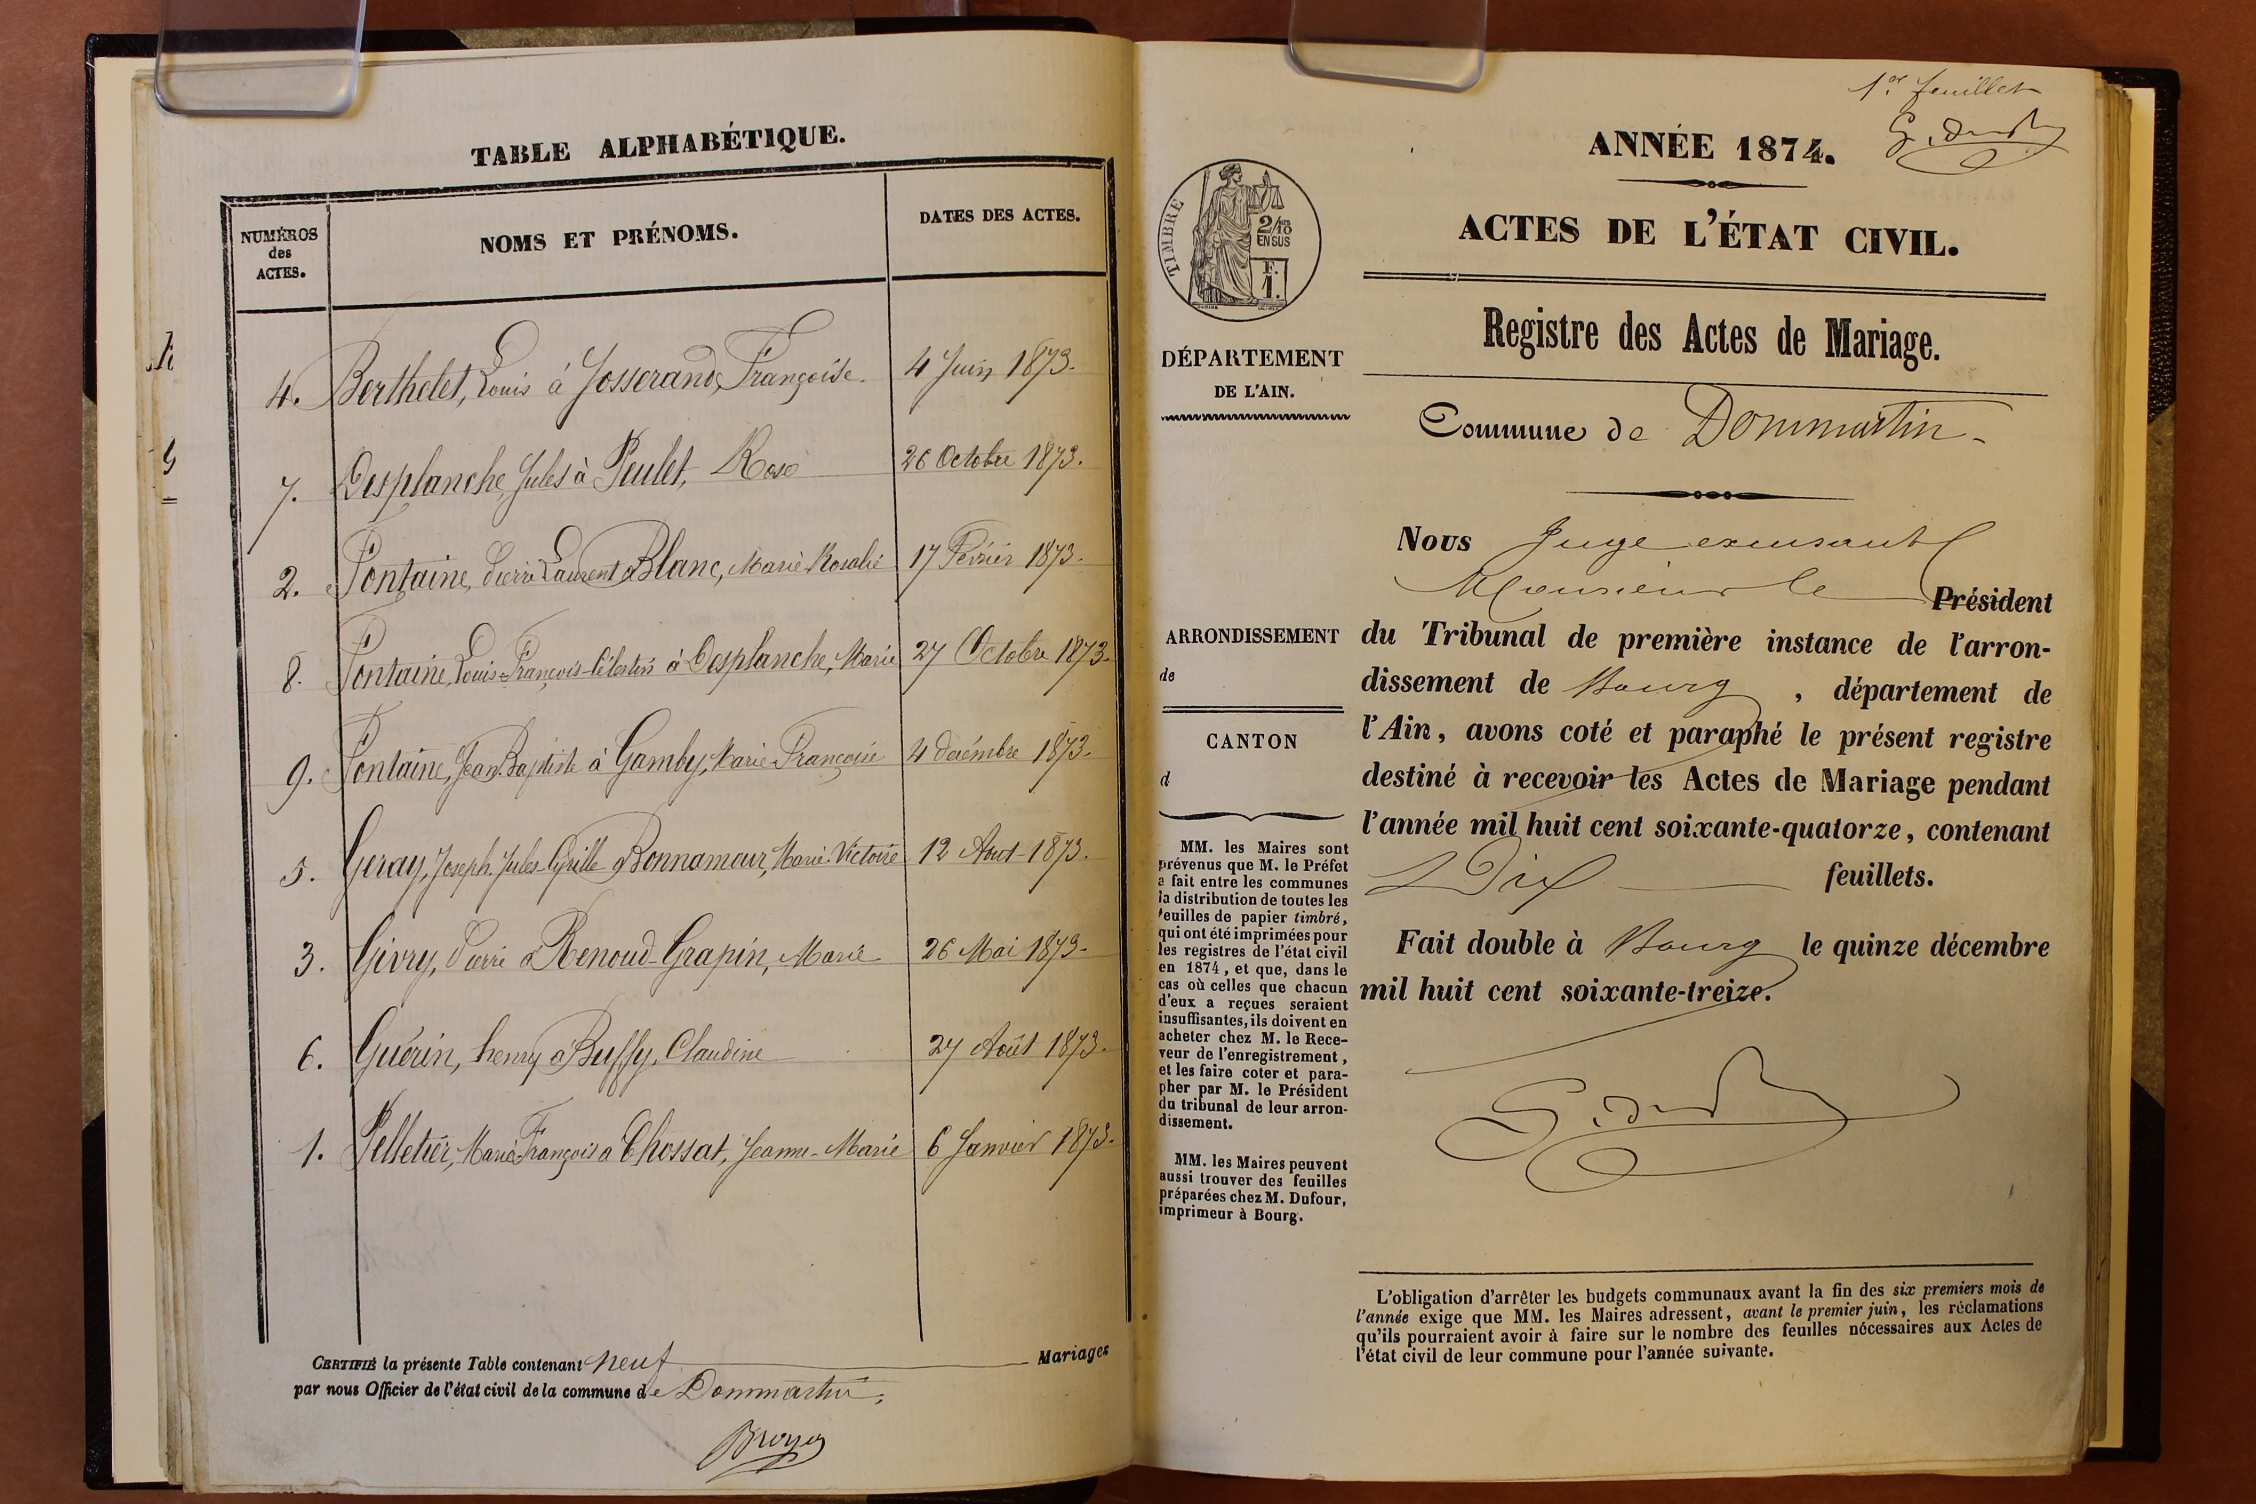 TABLE ALPHABÉTIQUE.
NUMÉROS des ACTES.
NOMS ET PRÉNOMS.
DATES DES ACTES.
4. Berthelet, Louis à Josserand, Françoise. 4 Juin 1873.
7. Desplanche, Jules à Peulet, Rose 26 Octobre 1873.
2. Fontaine, Pierre Laurent à Blanc, Marie Rosalie 17 Février 1873.
8. Fontaine, Louis-François-Célestin à Desplanche, Marie 27 Octobre 1873.
9. Fontaine, Jean-Baptiste à Gamby, Marie Françoise 4 décembre 1873.
5. Geray, Joseph-Jules-Cyrille à Bonnamour, Marie Victoire 12 Aout 1873.
3. Givry, Pierre à Renoud-Grapin, Marie 26 Mai 1873.
6. Guérin, henry à Buffy, Claudine 27 Août 1873.
1. Pelletier, Marie François à Chossat, Jeanne-Marie 6 Janvier 1873.
CERTIFIÉ la présente Table contenant neuf Mariages
par nous Officier de l'état civil de la commune de Dommartin.
Broyer
1er feuillet
ANNÉE 1874.
ACTES DE L'ÉTAT CIVIL.
Registre des Actes de Mariage.
Commune de Dommartin
TIMBRE
2/10 EN SUS
F. 1.
DÉPARTEMENT
DE L'AIN.
ARRONDISSEMENT
de
CANTON
d
MM. les Maires sont
prévenus que M. le Préfet
a fait entre les communes
la distribution de toutes les
feuilles de papier timbré,
qui ont été imprimées pour
les registres de l'état civil
en 1874, et que, dans le
cas où celles que chacun
d'eux a reçues seraient
insuffisantes, ils doivent en
acheter chez M. le Rece-
veur de l'enregistrement,
et les faire coter et para-
pher par M. le Président
du tribunal de leur arron-
dissement.
MM. les Maires peuvent
aussi trouver des feuilles
préparées chez M. Dufour,
imprimeur à Bourg.
Nous Juge excusant
Monsieur le Président
du Tribunal de première instance de l'arron-
dissement de Bourg, département de
l'Ain, avons coté et paraphé le présent registre
destiné à recevoir les Actes de Mariage pendant
l'année mil huit cent soixante-quatorze, contenant
Dix feuillets.
Fait double à Bourg le quinze décembre
mil huit cent soixante-treize.
L'obligation d'arrêter les budgets communaux avant la fin des six premiers mois de
l'année exige que MM. les Maires adressent, avant le premier juin, les réclamations
qu'ils pourraient avoir à faire sur le nombre des feuilles nécessaires aux Actes de
l'état civil de leur commune pour l'année suivante.